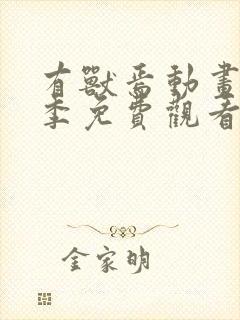 有獸焉動畫
季免費觀看
金家明